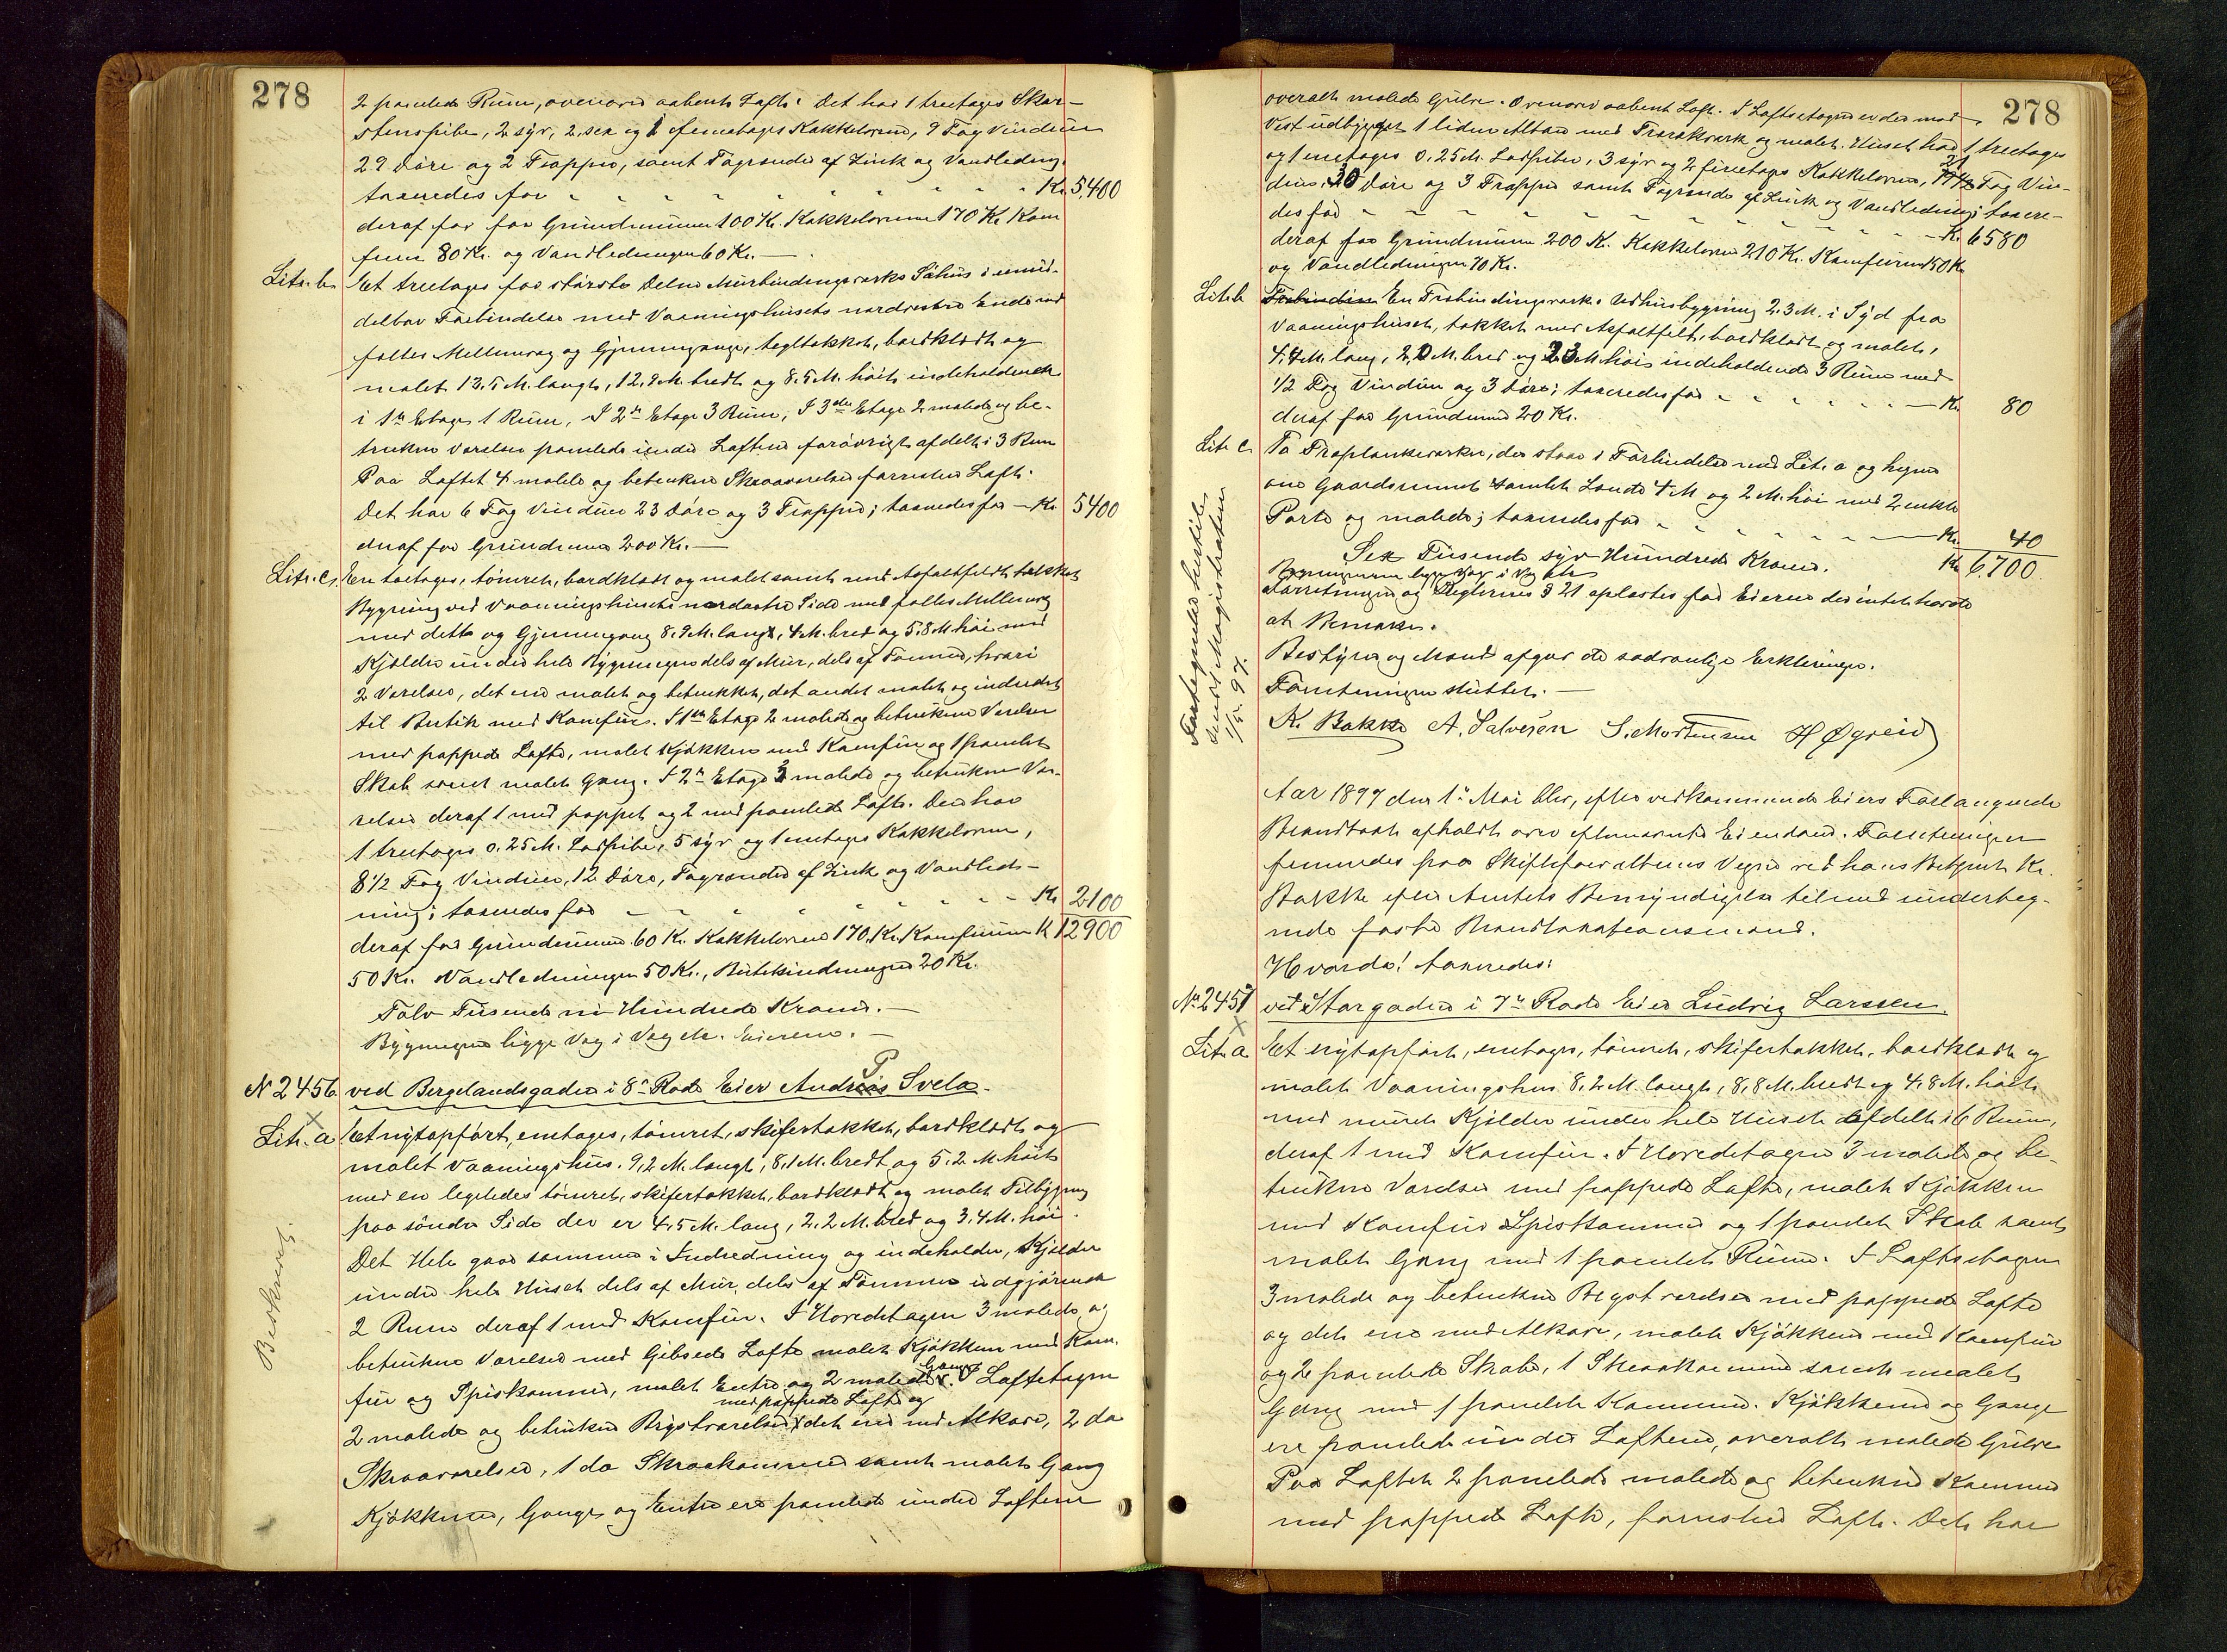 278
2 panelede Rum, ovenover aabent Loft. Det har 1 treetages Skor-
stenspibe, 2 syv, 2 sex og 1 femetages Kakkelovne, 9 Fag Vinduer
29 Døre og 2 Trapper, samt Tagrender af Zink og Vandledning
taxeredes for - - - Kr 5400
deraf for Grundmuren 100 Kr. Kakkelovnene 170 Kr. Kom
furer 80 Kr. og Vandledningen 60 Kr. —
Litr. b. Et treetages for største Delen Murbindingsværks Søhus i umid-
delbar Forbindelse med Vaaningshusets nordvestre Ende med
fælles Mellemvæg og Gjennemgange, tegltækket, bordklædt og
malet 13.5 M. langt, 12.9 M. bredt og 8.5 M. høit indeholdende
i 1ste Etage 1 Rum, I 2den Etage 3 Rum, I 3die Etage 2 malede og be-
trukne Værelser panelede under Loftene forøvrigt afdelt i 3 Rum
Paa Loftet 4 malede og betrukne Skraaværelser forresten Loft.
Det har 6 Fag Vinduer 23 Døre og 3 Trapper; taxeredes for — Kr. 5400
deraf for Grundmuren 200 Kr. —
Litr. c. En toetages, tømret, bordklædt og malet samt med Asfaltfeldt tækket
Bygning ved Vaaningshusets nordøstre Side med fælles Mellemvæg
med dette og Gjennemgang 8.9 M. lang, 4 M. bred og 5.8 M. høi med
Kjælder under hele Bygningen dels af Mur, dels af Tømmer, hvori
2 Værelser, det ene malet og betrukket, det andet malet og indredet
til Butik med Komfur. I 1ste Etage 2 malede og betrukne Værelser
med pappede Lofte, malet Kjøkken med Komfur og 1 panelet
Skab samt malet Gang. I 2den Etage 3 malede og betrukne Væ-
relser deraf 1 med pappet og 2 med panelede Lofte. Den har
1 treetages 0.25 M. Ladpibe, 5 syv og 1 enetages Kakkelovne,
8 1/2 Fag Vinduer, 12 Døre, Tagrender af Zink og Vandled-
ning; taxeredes for - - - Kr 2100
deraf for Grundmuren 60 Kr. Kakkelovnene 170 Kr. Komfurene K 12900
50 Kr. Vandledningen 50 Kr., Butikindredningen 20 Kr.
Tolv Tusende ni Hundrede Kroner. —
Bygningerne ligge Væg i Væg etc. Eierene. —
N 2456 ved Bergelandsgaden i 8de Rode Eier Andreas P Svela.
Litr. a Et nytopført, enetages, tømret, skifertækket, bordklædt og
malet Vaaningshus. 9,2 M. langt, 8,1 M. bredt og 5.2 M. høit
med en ligeledes tømret, skifertækket, bordklædt og malet Tilbygning
paa søndre Side der er 4.5 M. lang, 2.2 M. bred og 3,4 M. høi.
Det Hele gaar sammen i Indredning og indeholder, Kjælder
under hele Huset dels af Mur, dels af Tømmer udgjørende
2 Rum deraf 1 med Komfur. I Hovedetagen 3 malede og
betrukne Værelser med Gibsede Lofte malet Kjøkken med Kom-
fur og Spiskammer, malet Entre og 2 malede Gange. I Loftetagen
2 malede og betrukne Bigstværelser med pappede Lofte og det ene med Alkove, 2 do
Skraaværelser, 1 do Skraakammer samt malet Gang
Kjøkkenet, Gange og Entre ere panelede under Loftene
Besøknevnt.
278
overalt malede Gulve. Ovenover aabent Loft. I Loftsetagen er der mod
Vest udbygget 1 liden Altan med Træværk og malet. Huset har 1 treetages
og 1 enetages 0.25 M. Ladpiber, 3 syv og 2 firetages Kakkelovne, Fag Vin-
duer, 30 Døre og 3 Trapper samt Tagrender af Zink og Vandledning; taxere-
des for - - - Kr. 6580
deraf for Grundmuren 200 Kr. Kakkelovne 210 Kr. Komfurene 150 Kr
og Vandledningen 70 Kr.
Litr. b En Træbindingsværks Vedhusbygning 2.3 M. i Syd fra
Vaaningshuset, tækket med Asfaltfelt, bordklædt og malet,
4.4 M. lang, 2,0 M. bred og 2,3 M. høi indeholdende 3 Rum med
1/2 Fag Vindue og 3 Døre; taxeredes for - - - Kr. 80
deraf for Grundmur 20 Kr.
Litr c. To Træplankeværker, der staar i Forbindelse med Litr. a og hegne
om Gaardsrummet samlet Længde 4 M og 2 M. høi med 2 enkle
Porte og malede; taxeredes for - - - Kr. 40
Sex Tusende syv Hundrede Kroner. Kr 6,700.
Bygningerne ligge Væg i Væg etc
Forretningen og Reglernes § 21 oplæstes for Eieren der intet havde
at Bemærke.
Bestyrer og Mænd afgav de sædvanlige Erklæringer.
Forretningen sluttet. —
K. Bakke A. Salvesen S. Mortensen H Øgreid
Fortegnelse hertil
sendt Magistraten
1/5. 97.
Aar 1897 den 1ste Mai blev, efter vedkommende Eiers Forlangende
Brandtaxt afholdt over efternævnte Eiendom. Forretningen
fremmedes paa Skifteforvalterens Vegne ved hans Betjent K.
Bakke efter Amtets Bemyndigelse tilmed underteg-
nede faste Brandtaxationsmænd.
Hvorda! taxeredes:
No 2457 ved Storgaden i 7de Rode Eier Ludvig Larssen.
Litr. a Et nytopført, enetages, tømret, skifertækket, bordklædt og
malet Vaaningshus 8.2 M. langt, 8,8 M. bredt og 4,8 M. høit
med muret Kjælder under hele Huset afdelt i 6 Rum,
deraf 1 med Komfur. I Hovedetagen 3 malede og be-
trukne Værelser med pappede Lofte, malet Kjøkken
med Komfur Spiskammer og 1 panelet Skab samt
malet Gang med 1 panelet Rum. I Loftsetagen
3 malede og betrukne Bigstværelser med pappede Lofte
og det ene med Alkove, malet Kjøkken med Komfur
og 2 panelede Skabe, 1 Skraakammer samt malet
Gang med 1 panelet Kammer. Kjøkkene og Gange
ere panelede under Loftene, overalt malede Gulve
Paa Loftet 2 panelede malede og betrukne Kammer
med pappede Lofte, forresten Loft. Det har